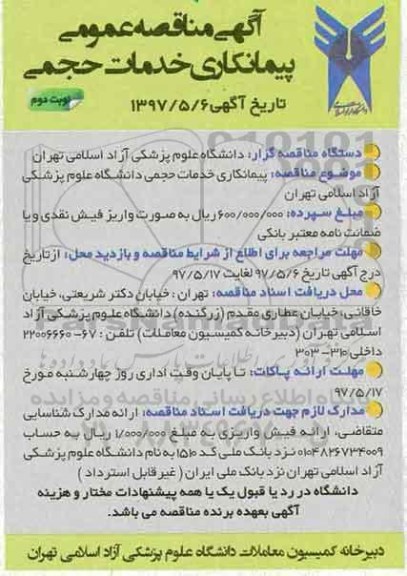 آگهی مناقصه عمومی
پیمانکاری خدمات حجمی
تاریخ آگهی ۱۳۹۷/۵/۶
نوبت دوم
دستگاه مناقصه گزار: دانشگاه علوم پزشکی آزاد اسلامی تهران
موضوع مناقصه: پیمانکاری خدمات حجمی دانشگاه علوم پزشکی
آزاد اسلامی تهران
مبلغ سپرده: ۶۰۰/۰۰۰/۰۰۰ ریال به صورت واریز فیش نقدی و یا
ضمانت نامه معتبر بانکی
مهلت مراجعه برای اطلاع از شرایط مناقصه و بازدید محل: از تاریخ
درج آگهی تاریخ ۹۷/۵/۶ لغایت ۹۷/۵/۱۷
محل دریافت اسناد مناقصه: تهران: خیابان دکتر شریعتی، خیابان
خاقانی، خیابان عطاری مقدم (زرگنده) دانشگاه علوم پزشکی آزاد
اسلامی تهران (دبیرخانه کمیسیون معاملات) تلفن: ۶۷-۲۲۰۰۶۶۶۰
داخلی ۳۱۰-۳۰۳
مهلت ارائه پاکات: تا پایان وقت اداری روز چهارشنبه مورخ
۹۷/۵/۱۷
مدارک لازم جهت دریافت اسناد مناقصه: ارائه مدارک شناسایی
متقاضی، ارائه فیش واریزی به مبلغ ۱/۰۰۰/۰۰۰ ریال به حساب
۰۱۰۴۸۲۶۷۳۴۰۰۹ نزد بانک ملی کد ۱۵۱۰ به نام دانشگاه علوم پزشکی
آزاد اسلامی تهران نزد بانک ملی ایران (غیر قابل استرداد)
دانشگاه در رد یا قبول یک یا همه پیشنهادات مختار و هزینه
آگهی بعهده برنده مناقصه می باشد.
دبیرخانه کمیسیون معاملات دانشگاه علوم پزشکی آزاد اسلامی تهران